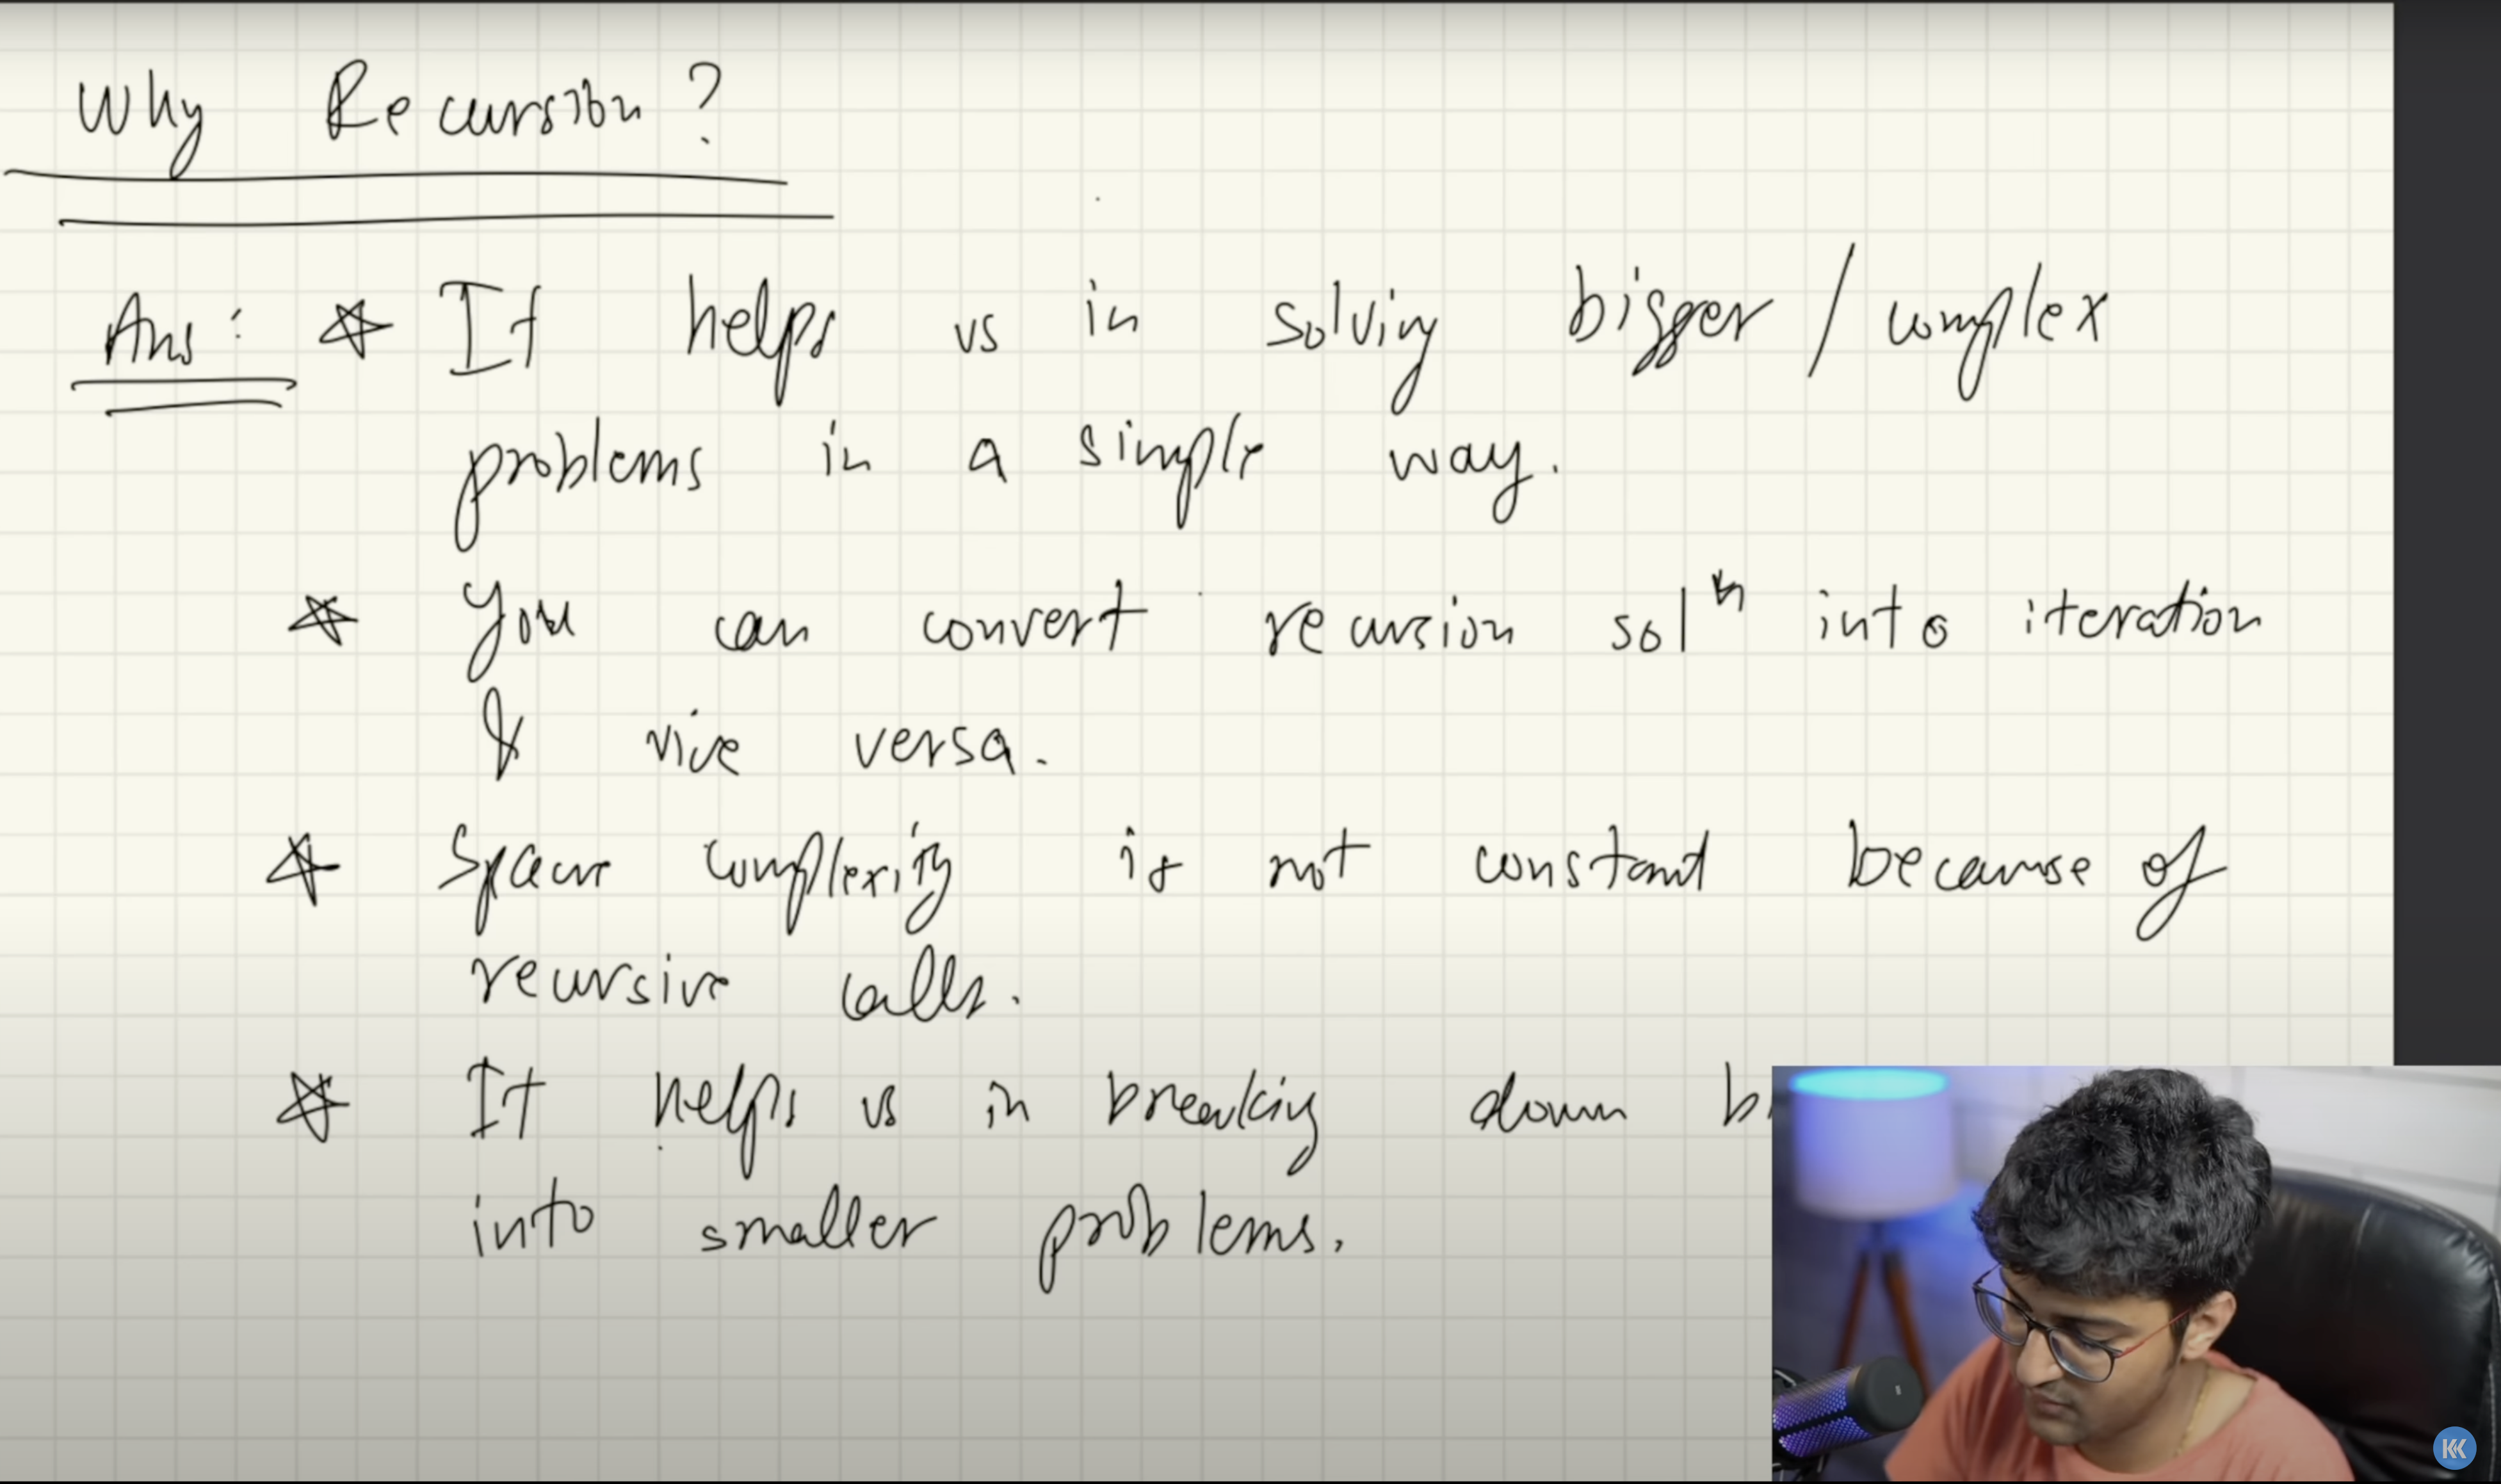 Why Recursion?
Ans: ☆ It helps us in solving bigger / complex
problems in a simple way.
☆ You can convert recursion solⁿ into iteration
& vice versa.
☆ Space complexity is not constant because of
recursive calls.
☆ It helps us in breaking down
into smaller problems.
KK